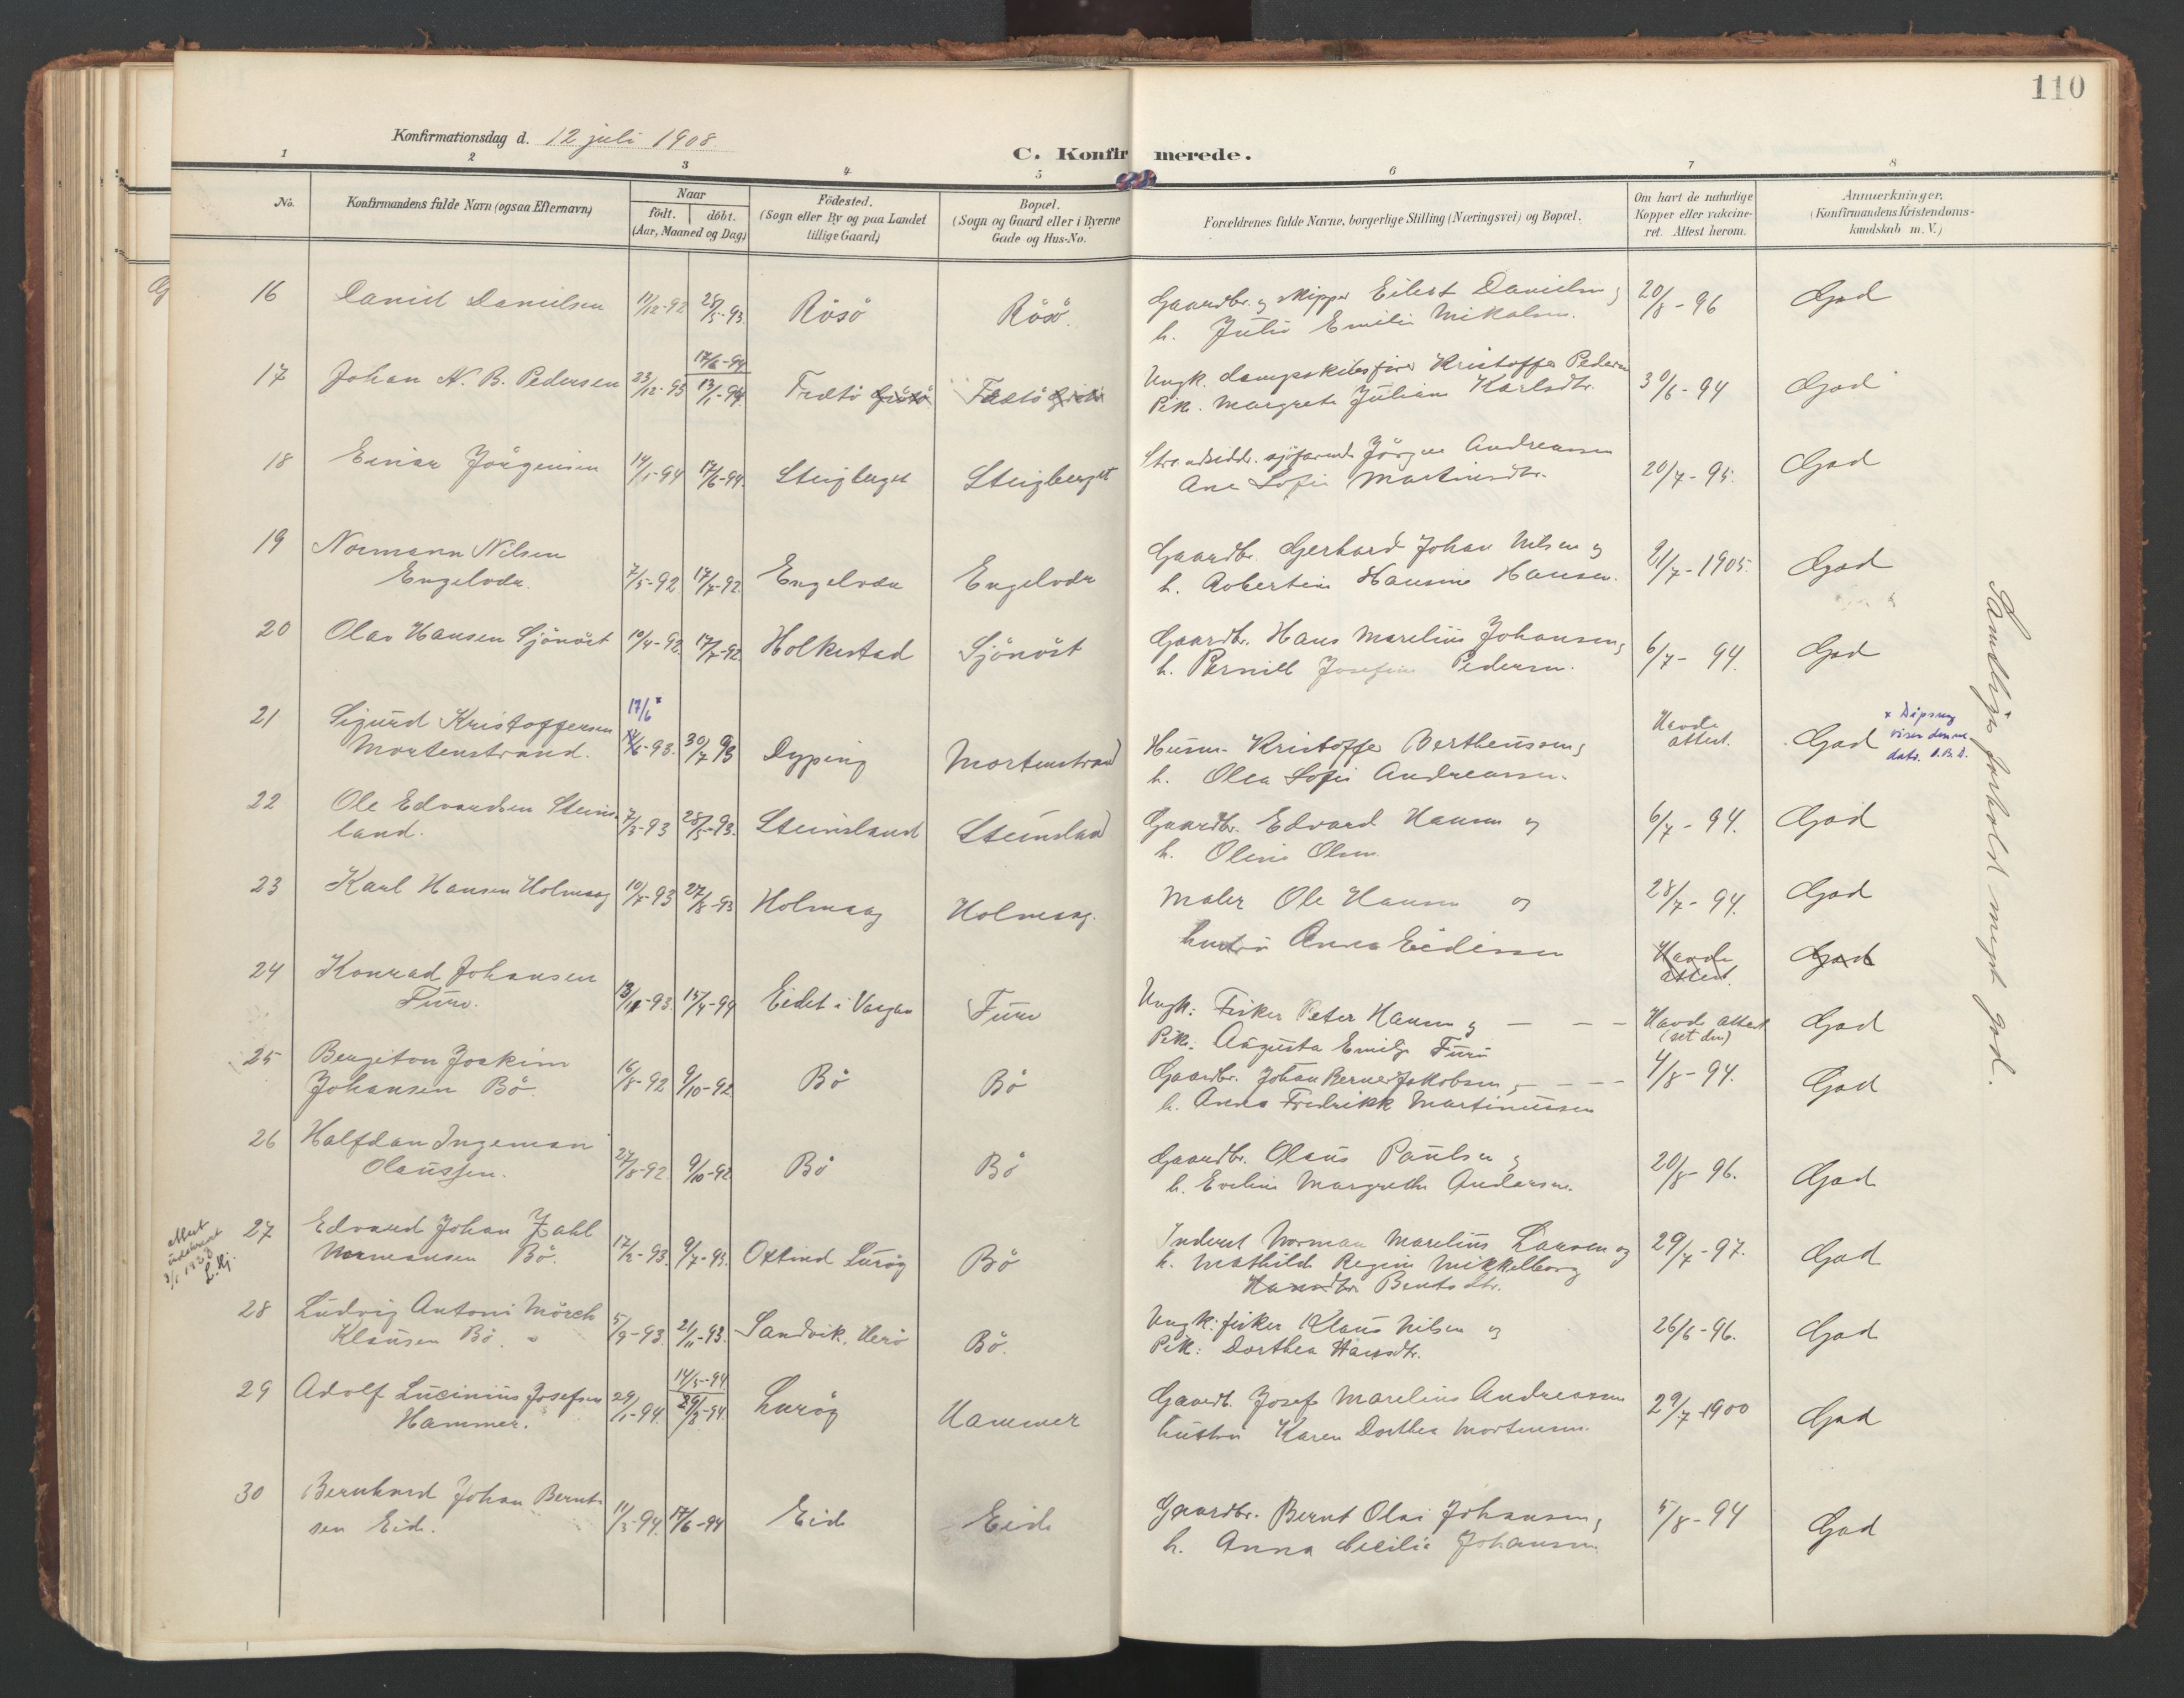 110
Konfirmationsdag d. 12 juli 1908.
C. Konfirmerede.
1 2 3 4 5 6 7 8
No. Konfirmandens fulde Navn (ogsaa Efternavn) Naar födt. döbt. (Aar, Maaned og Dag) Födested. (Sogn eller By og paa Landet tillige Gaard) Bopæl. (Sogn og Gaard eller i Byerne Gade og Hus-No. Forældrenes fulde Navne, borgerlige Stilling (Næringsvei) og Bopæl. Om havt de naturlige Kopper eller vakcineret. Attest herom. Anmerkninger. (Konfirmandens Kristendomskundskab m. V.)
16 Daniel Danielsen 11/12-92 28/5-93 Rösö Rösö. Gaardbr. og skipper Eilert Danielsen og 20/8-96 God
h. Julie Emilie Mikalsen.
17/6-94
17 Johan N. B. Pedersen 23/12-93 13/1-94 Fratö Fratö Ungk. dampskibsfører Kristoffer Pedersen 30/6-94 God
Pik. Margrete Juliane Karlsdtr.
18 Einar Jörgensen 14/1-94 17/6-94. Steigberget Steigberget Strandsidder. sjöfarende Jörgen Andreassen 20/7-95. God
Ane Sofie Martinsdtr.
19 Normann Nilsen Gaardbr. Gerhard Johan Nilsen og
Engelvær. 7/5-92 17/7-92 Engelvær Engelvær h. Robertine Hansine Hansen. 21/7-1905. God
20 Olav Hansen Sjönöst 10/4-92 17/7-92 Holkestad Sjönöst Gaardbr. Hans Marelius Johansen og 6/7-94. God
h. Pernille Josefine Pedersen.
17/6 x
21 Sigurd Kristoffersen Havde attest. x Dåpsreg
Mortenstrand. 14/6-93. 30/7 93 Dyping Mortenstrand Husm. Kristoffer Bertheussen og God viser denne
h. Olea Sofie Andreassen. dato. O.B.D.
22 Ole Edvardsen Steins-
land. 7/3-93 28/5-93. Steinsland Steinsland Gaardbr. Edvard Hansen og 6/7-94. God
h. Oline Olsen.
23 Karl Hansen Holmaag 10/5-93 27/8-93 Holmaag Holmaag. Maler Ole Hansen og 28/7-94. God
hustru Anna Eidissen Havde attest. God
24 Konrad Johansen
Furu. 13/11-93. 15/4-94 Eidet i Vaagan Furu Ungk: Fisker Peter Hansen og Havde attest (set den) God
Pike: Augusta Emilie Furu
25 Bergiton Joakim
Johansen Bö. 16/8-92 9/10-92 Bö Bö Gaardbr. Johan Berner Jakobsen og 4/8-94. God
h. Anna Fredrikke Martinussen
26 Halfdan Ingeman
Olaussen. 27/8-92. 9/10-92 Bö Bö Gaardbr. Olaus Paulsen og 20/8-96. God
h. Eveline Margrethe Andersen.
attest
udskrevet
L. Hj.
27 Edvard Johan Zahl Inderst Norman Marelius Larsen og
Normansen Bö. 17/2-93. 9/7-93. Oxtind Luröy Bö h. Mathilde Regine Mikkelborg 29/7-97. God
Bentsdtr.
28 Ludvig Antoni Mörch
Klausen Bö. 5/9-93. 21/11-93. Sandvik, Herö Bö. Ungk: fisker Klaus Nilsen og 26/6-96. God
Pik: Dorthea Hansdtr.
14/5-94
29 Adolf Lucinius Josefsen
Hammer. 29/1-94. 29/3-94. Luröy Hammer Gaardb. Josef Marelius Andreassen 29/7-1900 God
hustru Karen Dorthea Mortensen.
30 Bernhard Johan Bernt-
sen Eid. 11/3-94. 17/6-94 Eid Eid Gaardbr. Bernt Olai Johansen og 5/8-94 God
h. Anna Cecilie Johansen.
Samtliges forhold meget god.